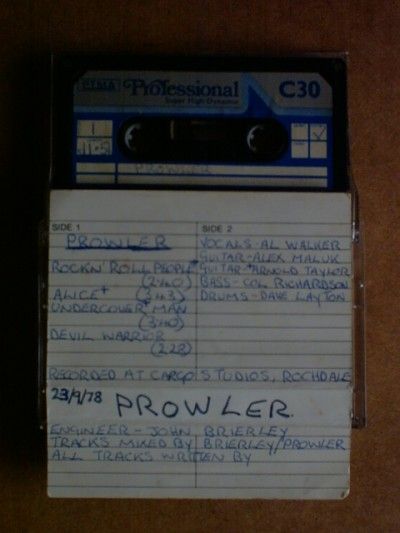 Professional
Super High Dynamic
C30
1
PROWLER
SIDE 1
SIDE 2
PROWLER
VOCALS-AL WALKER
GUITAR-ALEX MALUK
ROCKN' ROLL PEOPLE*
GUITAR-*ARNOLD TAYLOR
(240)
BASS-COL RICHARDSON
ALICE+ (343)
DRUMS-DAVE LAYTON
UNDERCOVER MAN
(340)
DEVIL WARRIOR
(228)
RECORDED AT CARGO STUDIOS, ROCHDALE
23/9/78 PROWLER.
ENGINEER-JOHN BRIERLEY
TRACKS MIXED BY BRIERLEY/PROWLER
ALL TRACKS WRITTEN BY